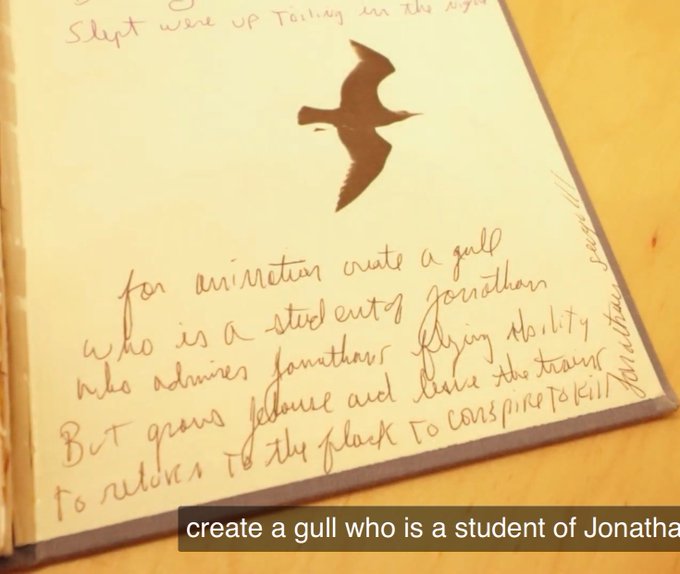 Slept were up Toiling in the night
for animation create a gull
who is a student of Jonathan
who admires Jonathans flying Ability
But grows jelouse and leave the
to return To the flock To conspire To kill
Jonathan Seagull
create a gull who is a student of Jonatha